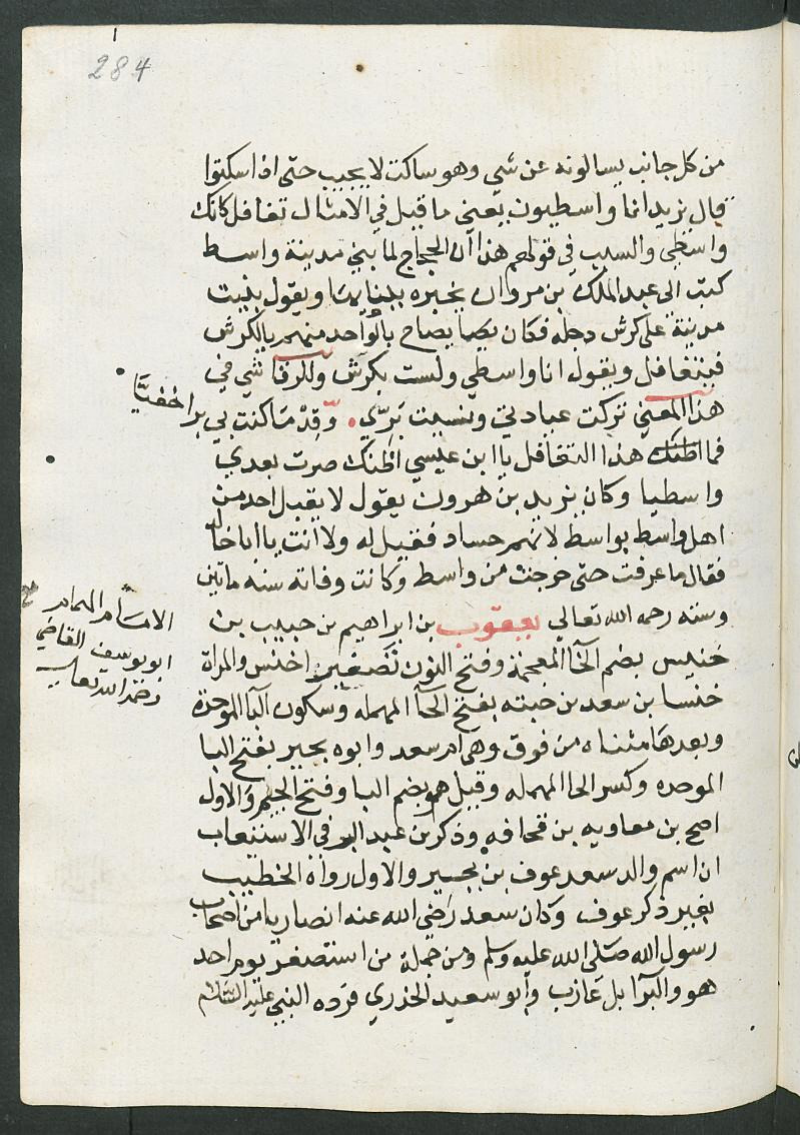 284
من كل جانب يسالونه عن شي وهو ساكت لا يجيب حتى اذا سكتوا
قال يزيد انا واسطيون يعني ما قيل في الامثال تغافل كانك
واسطي والسبب في قولهم هذا ان الحجاج لما بنى مدينة واسط
كتب الى عبد الملك بن مروان يخبره ببنايها ويقول بنيت
مدينة على كرش دجله فكان يصايصاح بالواحد منهم يا لكرش
فيتغافل ويقول انا واسطي ولست بكرش وللرقا شي في
هذا المعنى تركت عبادتي ونسيت بري وقدما كنت بي
برا حفيا
فما اظنك هذا التغافل يا ابن عيسي اظنك صرت بعدي
واسطيا وكان يزيد بن هرون يقول لا يقبل احد من
اهل واسط بواسط لانهم حساد فقيل له ولا انت يا ابا خالد
فقال ما عرفت حتى خرجت من واسط وكانت وفاته سنه ماتين
وسته رحمه الله تعالى يعقوب بن ابراهيم بن حبيب بن
الامام الهمام
ابو يوسف القاضي
رحمه الله تعالى
خنيس بضم الخا المعجمة وفتح النون تصغير اخنس والمراة
خنسا بن سعد بن حبته بفتح الحا المهمله وسكون البا الموحدة
وبعدها مثناه من فوق وهي ام سعد وابوه بحير بفتح البا
الموحده وكسر الحا المهمله وقيل هو بضم البا وفتح الجيم والاول
اصح بن معاويه بن قحافه وذكر بن عبد البر في الاستيعاب
ان اسم والد سعد عوف بن بحير والاول رواه الخطيب
بغير ذكر عوف وكان سعد رضي الله عنه انصاريا من اصحاب
رسول الله صلى الله عليه وسلم ومن جملة من استصغر يوم احد
هو والبرا بن عازب وابو سعيد الخدري فرده النبي عليه السلام